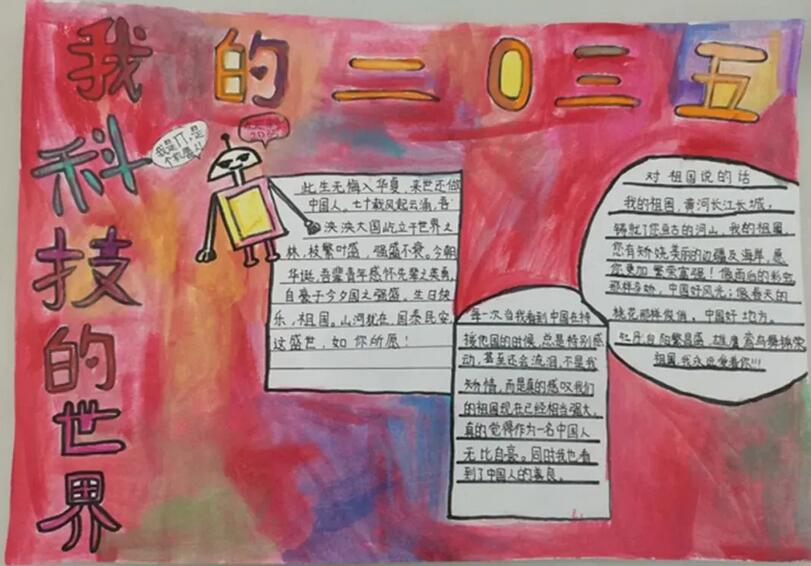 我的二0三五
科技的世界
我是IT,是
个机器人!
此生无悔入华夏,来世还做
中国人。七十载风起云涌,吾
泱泱大国屹立于世界之
林,枝繁叶盛,强盛不衰。今朝
华诞,吾辈青年感怀先辈之英勇,
自豪于今夕国之强盛。生日快
乐,祖国。山河犹在,国泰民安,
这盛世,如你所愿!
每一次当我看到中国在持
援他国的时候,总是特别感
动,甚至还会流泪,不是我
矫情,而是真的感叹我们
的祖国现在已经相当强大,
真的觉得作为一名中国人
无比自豪。同时我也看
到了中国人的善良。
对祖国说的话
我的祖国,黄河长江长城,
铸就了你亘古的河山,我的祖国,
您有矫娆美丽的边疆及海岸,愿
您更加繁荣富强!像雨后的彩虹
那样多娇,中国好风光;像春天的
桃花那样俊俏,中国好地方。
牡丹
繁昌盛,雄鹰
祖国,我永远爱着你!!!